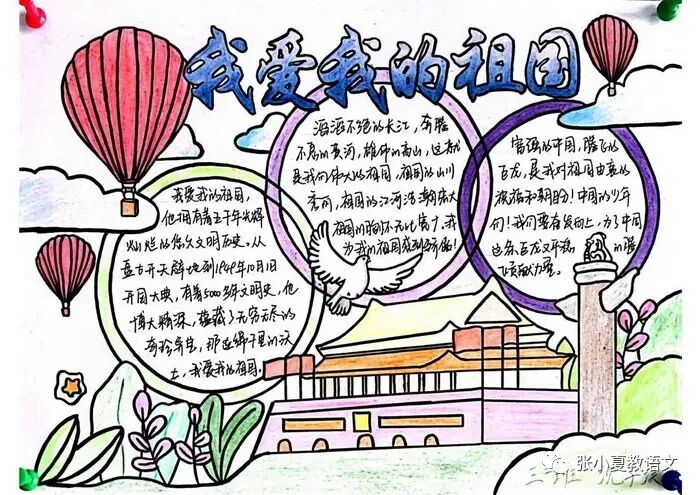 我爱我的祖国
我爱我的祖国,
他拥有着五千年光辉
灿烂的悠久文明历史。从
盘古开天辟地到1949年10月1日
开国大典,有着5000多年文明史,他
博大精深,蕴藏了无穷无尽的
奇珍异宝,那连绵千里的沃
土,我爱我的祖国。
滔滔不绝的长江,奔腾
不息的黄河,雄伟的高山,这就
是我们伟大的祖国,祖国的山川
秀丽,祖国的江河浩瀚宏大
祖国的物产无比富广,我
为我的祖国感到骄傲!
富强的中国,腾飞的
巨龙,是我对祖国由衷的
祝福和期盼!中国的少年
们!我们要奋发向上,为了中国
这条巨龙 的腾
飞贡献力量。
张小夏教语文